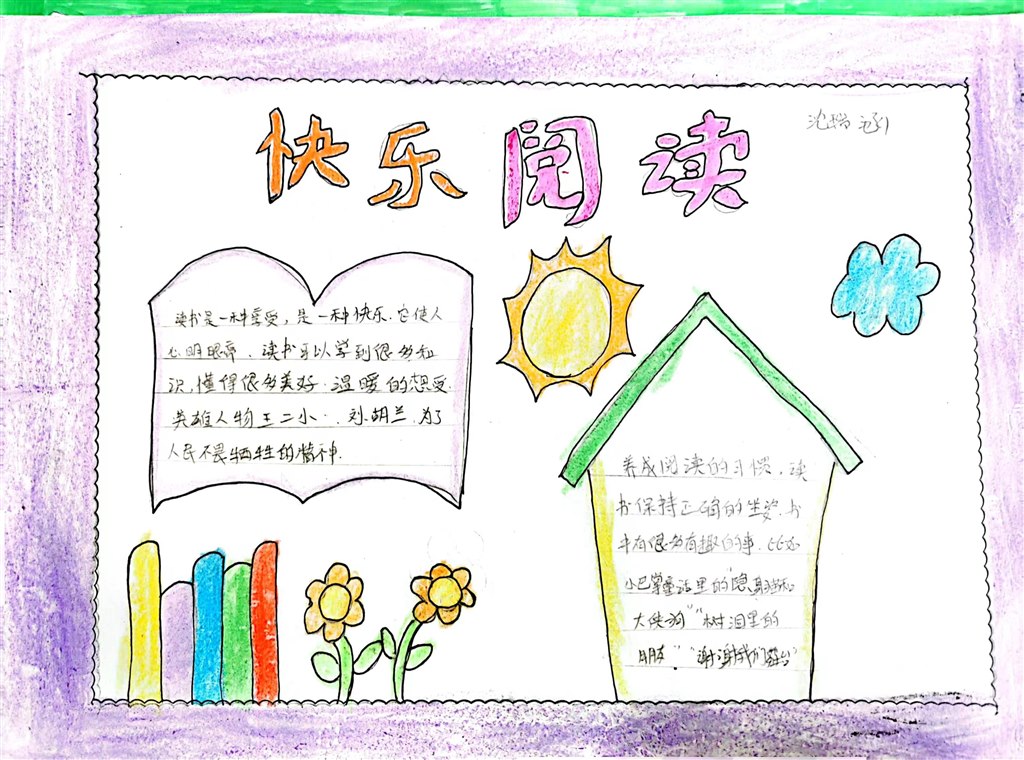 快乐阅读
沈瑞涵
读书是一种享受，是一种快乐.它使人
心明眼亮.读书可以学到很多知
识,懂得很多美好.温暖的想受.
英雄人物王二小.刘胡兰.为了
人民不畏牺牲的精神.
养成阅读的习惯.读
书保持正确的坐姿.书
中有很多有趣的事.比如
小巴掌童话里的"隐身
大侠狗""树洞里的
朋友""谢谢你们